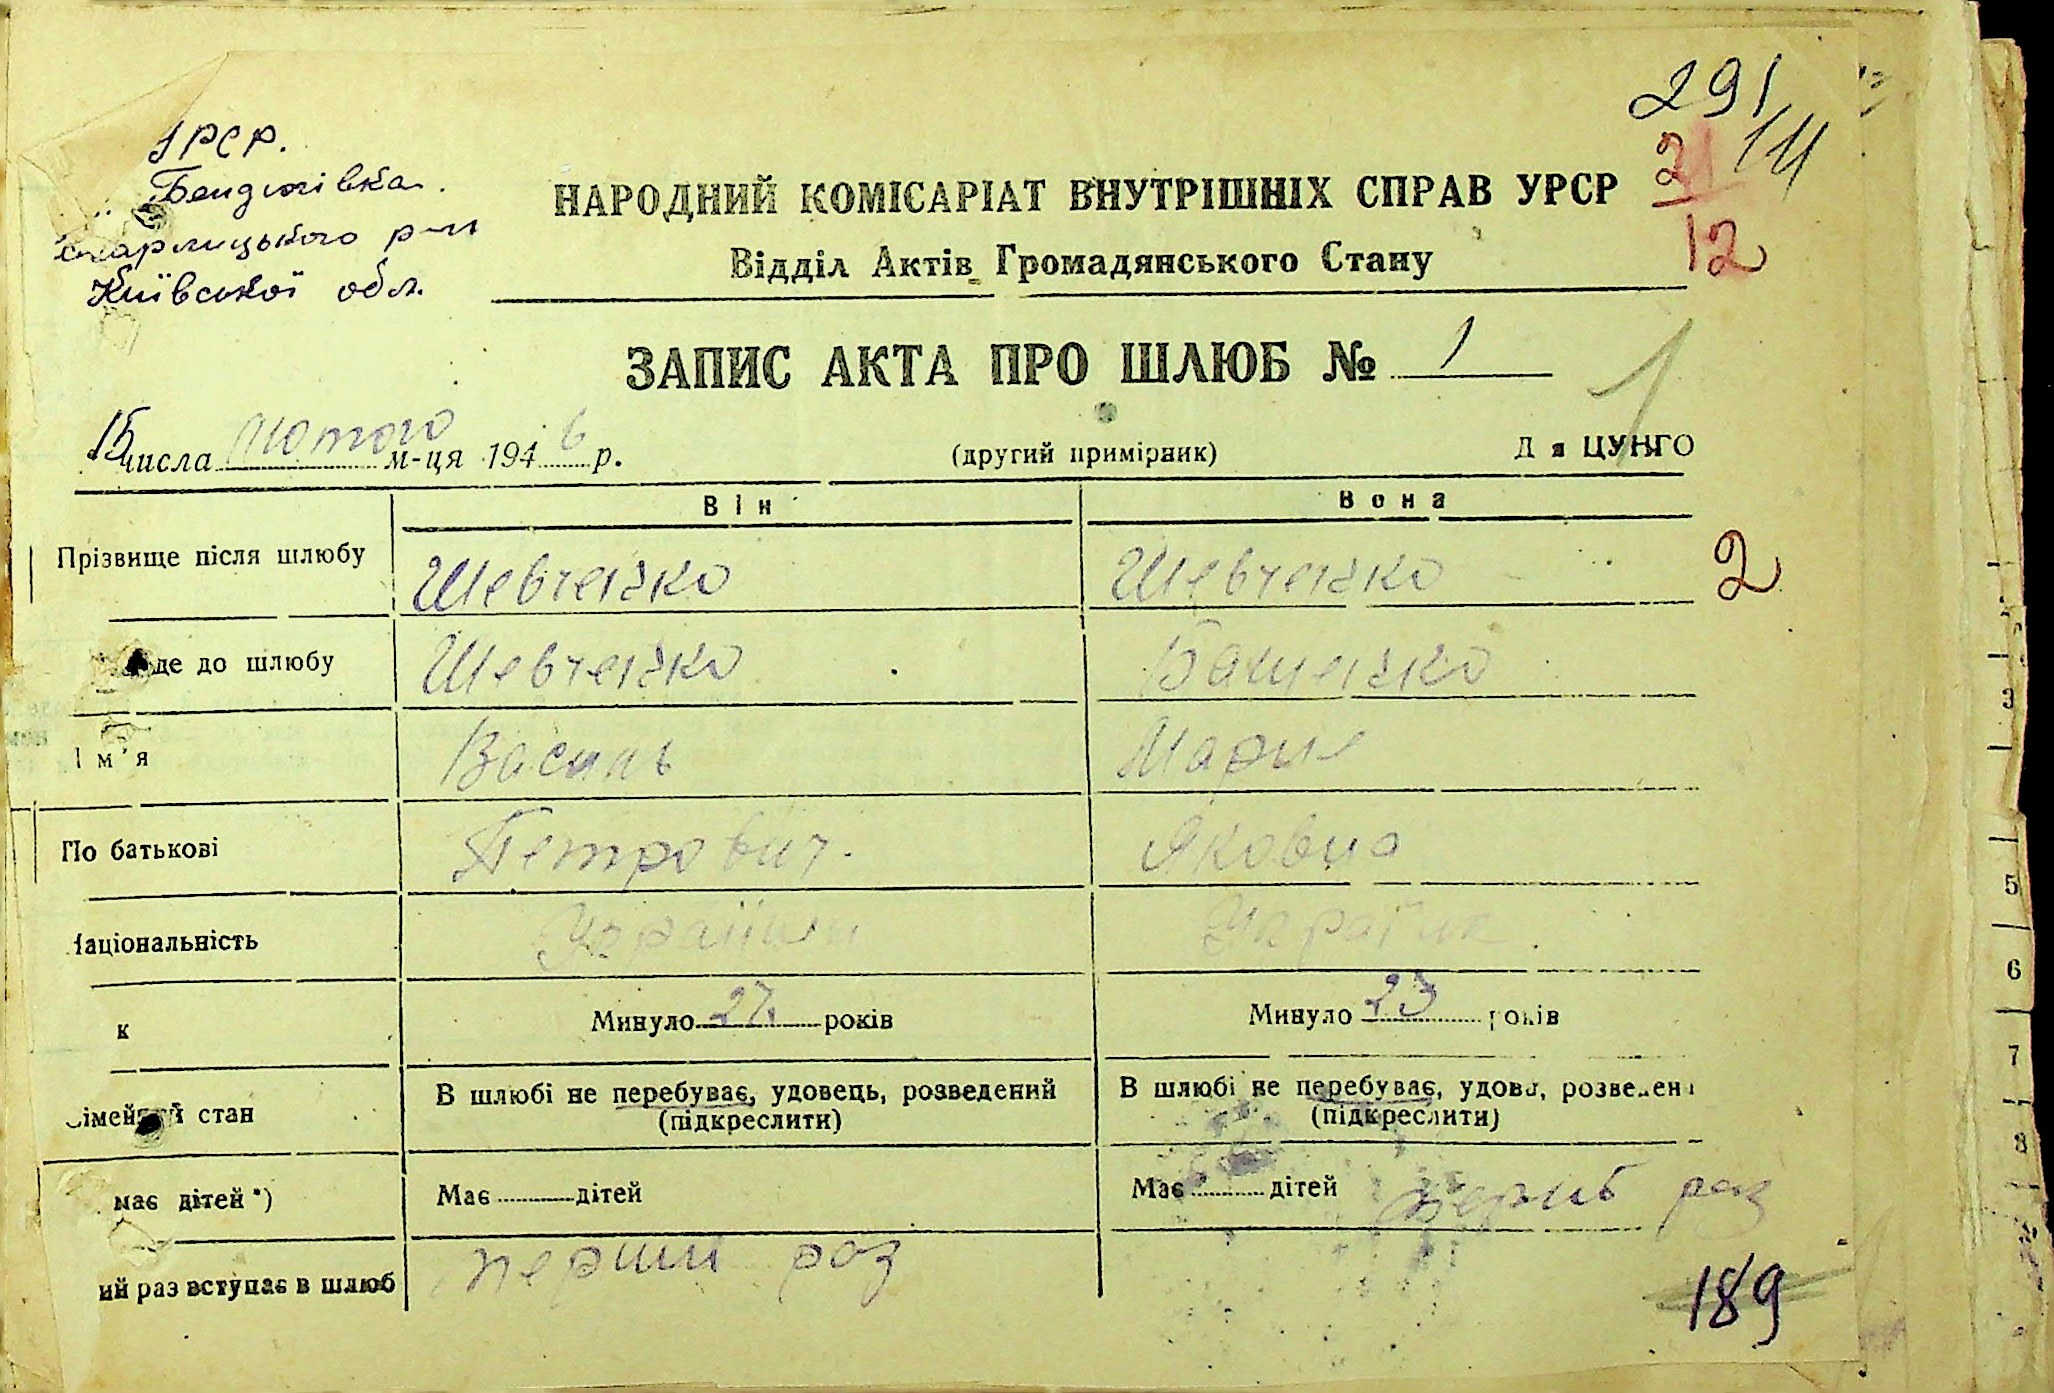 УРСР.
Бендюгівка
р-н
Київської обл.
291
21/12
НАРОДНИЙ КОМІСАРІАТ ВНУТРІШНІХ СПРАВ УРСР
Відділ Актів Громадянського Стану
ЗАПИС АКТА ПРО ШЛЮБ № 1
1
15 числа лютого м-ця 1946 р. (другий примірник) Д я ЦУНГО
Він Вона
Прізвище після шлюбу Шевченко Шевченко 2
де до шлюбу Шевченко Бащенко
Ім'я Василь Мария
По батькові Петрович. Яковна
Національність
к Минуло 27 років Минуло 23 років
сімейний стан В шлюбі не перебуває, удовець, розведений В шлюбі не перебуває, удова, розведена
(підкреслити) (підкреслити)
має дітей *) Має дітей Має дітей раз
ий раз вступає в шлюб перший раз
189
3
5
6
7
8